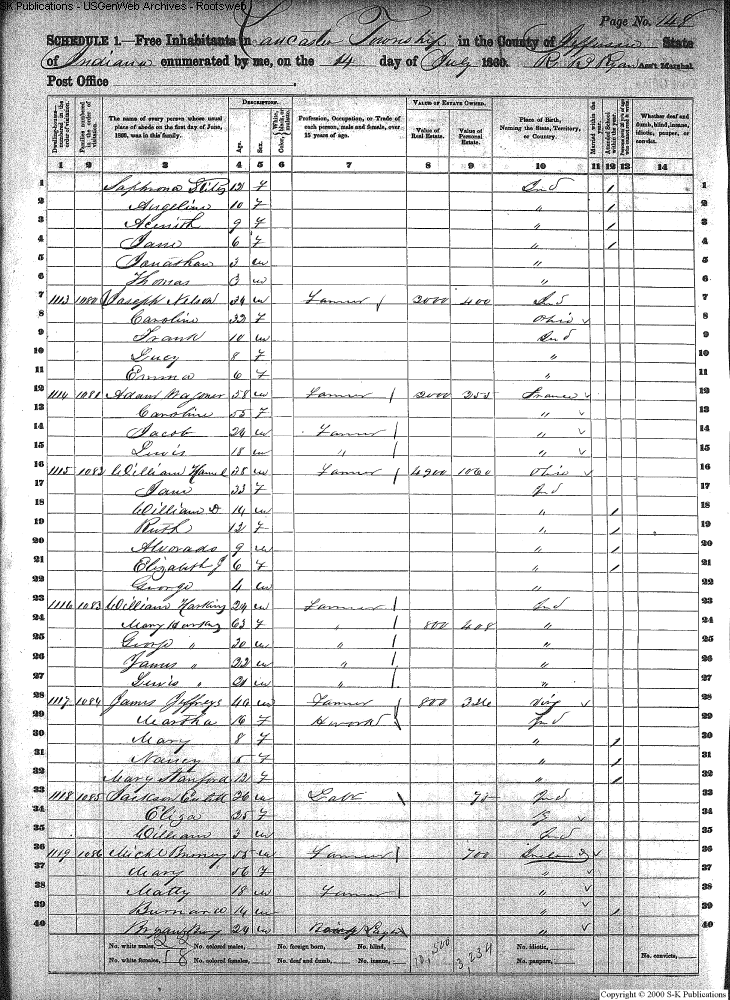 S-K Publications - USGenWeb Archives - Rootsweb
Page No. 148
SCHEDULE 1.—Free Inhabitants in Lancaster Township in the County of Jefferson State
of Indiana enumerated by me, on the 14 day of July 1860. R. W. Ryan Ass't Marshal.
Post Office
Dwelling-houses—numbered in the order of visitation. Families numbered in the order of visitation. The name of every person whose usual place of abode on the first day of June, 1860, was in this family. DESCRIPTION. Age. Sex. Color, White, black, or mulatto. Profession, Occupation, or Trade of each person, male and female, over 15 years of age. VALUE OF ESTATE OWNED. Value of Real Estate. Value of Personal Estate. Place of Birth, Naming the State, Territory, or Country. Married within the year. Attended School within the year. Whether deaf and dumb, blind, insane, idiotic, pauper, or convict.
1 2 3 4 5 6 7 8 9 10 11 12 13 14
1 12 f Ind / 1
2 Angeline 10 f " / 2
3 9 f " / 3
4 Jane 6 f " / 4
5 Jonathan 3 m " 5
6 Thomas 3 m " 6
7 1113 1080 Joseph Nelson 34 m Farmer / 2000 400 Ind 7
8 Caroline 32 f Ohio ✓ 8
9 Frank 10 m Ind 9
10 Lucy 8 f " 10
11 Emma 6 f " 11
12 1114 1081 Adam Wagoner 58 m Farmer / 2000 252 France ✓ 12
13 Caroline 55 f " ✓ 13
14 Jacob 24 m Farmer / " ✓ 14
15 Lewis 18 m " / " ✓ 15
16 1115 1082 William 38 m Farmer / 4900 1060 Ohio ✓ 16
17 Jane 33 f Ind 17
18 William D 14 m " / 18
19 Ruth 12 f " / 19
20 Alvorado 9 m " / 20
21 Elizabeth J 6 f " / 21
22 George 4 m " 22
23 1116 1083 William Harkins 24 m Farmer / Ind 23
24 Mary 63 f " / 800 408 " 24
25 George " 30 m " / " 25
26 James " 22 m " / " 26
27 Lewis " 21 m " / " 27
28 1117 1084 James Jeffreys 40 m Farmer / 800 326 Virg ✓ 28
29 Martha 16 f H work Ind 29
30 Mary 8 f " / 30
31 Nancy 5 f " / 31
32 Mary Stanford 12 f " / 32
33 1118 1085 Jackson 26 m 75 Ind 33
34 Eliza 25 f ✓ 34
35 William 2 m Ind 35
36 1119 1086 Michl 55 m Farmer / 700 Ireland ✓ 36
37 Mary 56 f " ✓ 37
38 Matty 18 m Farmer / " ✓ 38
39 14 m " ✓ / 39
40 24 m " ✓ 40
No. white males, 22 No. colored males, No. foreign born, No. blind, 10,500 3,234 No. idiotic,
No. white females, 18 No. colored females, No. deaf and dumb, No. insane, No. paupers, No. convicts,
Copyright © 2000 S-K Publications